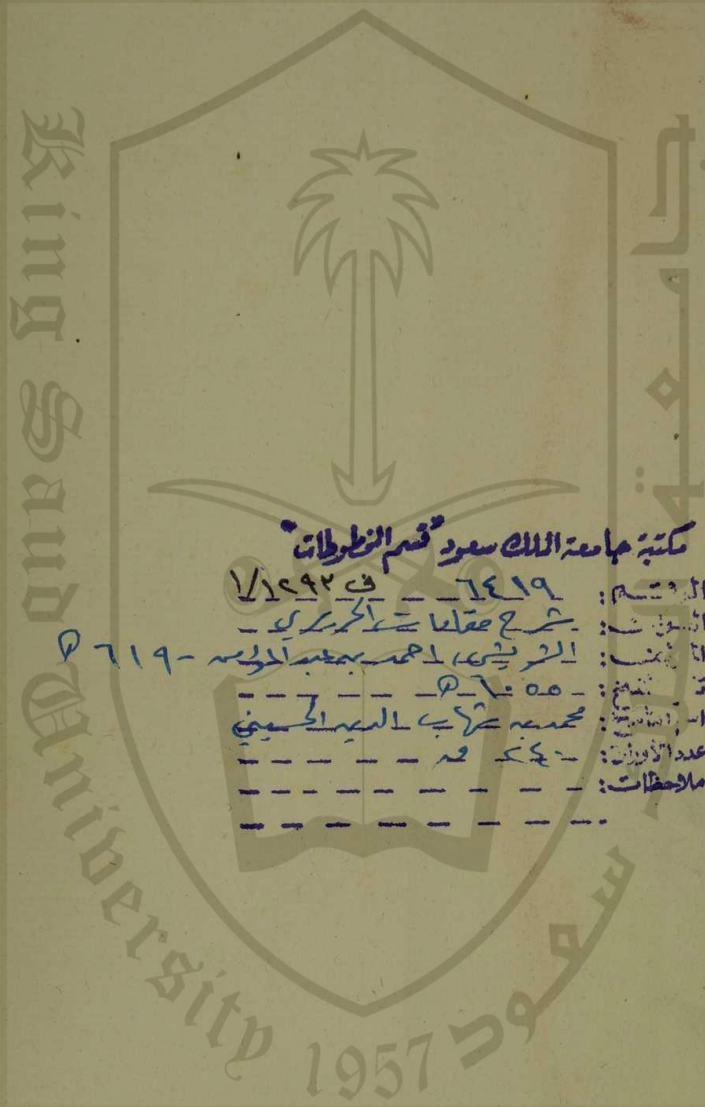 King Saud University 1957
جامعة الملك سعود
مكتبة جامعة الملك سعود "قسم المخطوطات"
الرقم: ٦٤١٩ ف ١٢٩٢/١
العنوان: شرح مقامات الحريري
المؤلف: الشريشي، احمد بن عبد المؤمن - ٦١٩ هـ
تاريخ النسخ: ١٠٥٥ هـ
اسم الناسخ: محمد بن شهاب الدين الحسيني
عدد الأوراق: ٢٤٠ ق
ملاحظات: